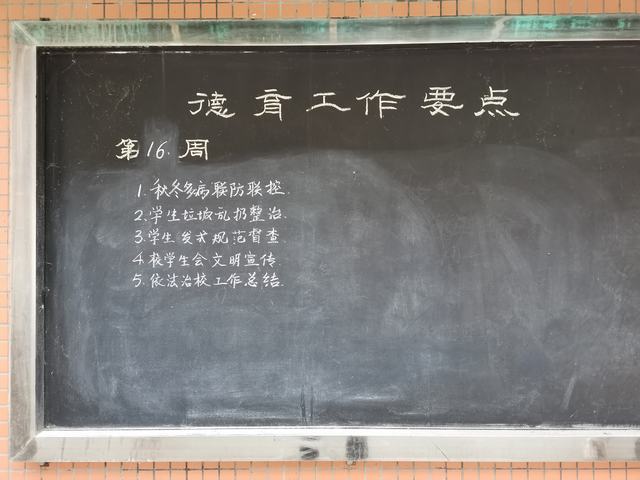 德育工作要点
第16.周
1.秋冬多病联防联控.
2.学生垃圾乱扔整治.
3.学生发式规范督查.
4.校学生会文明宣传.
5.依法治校工作总结.